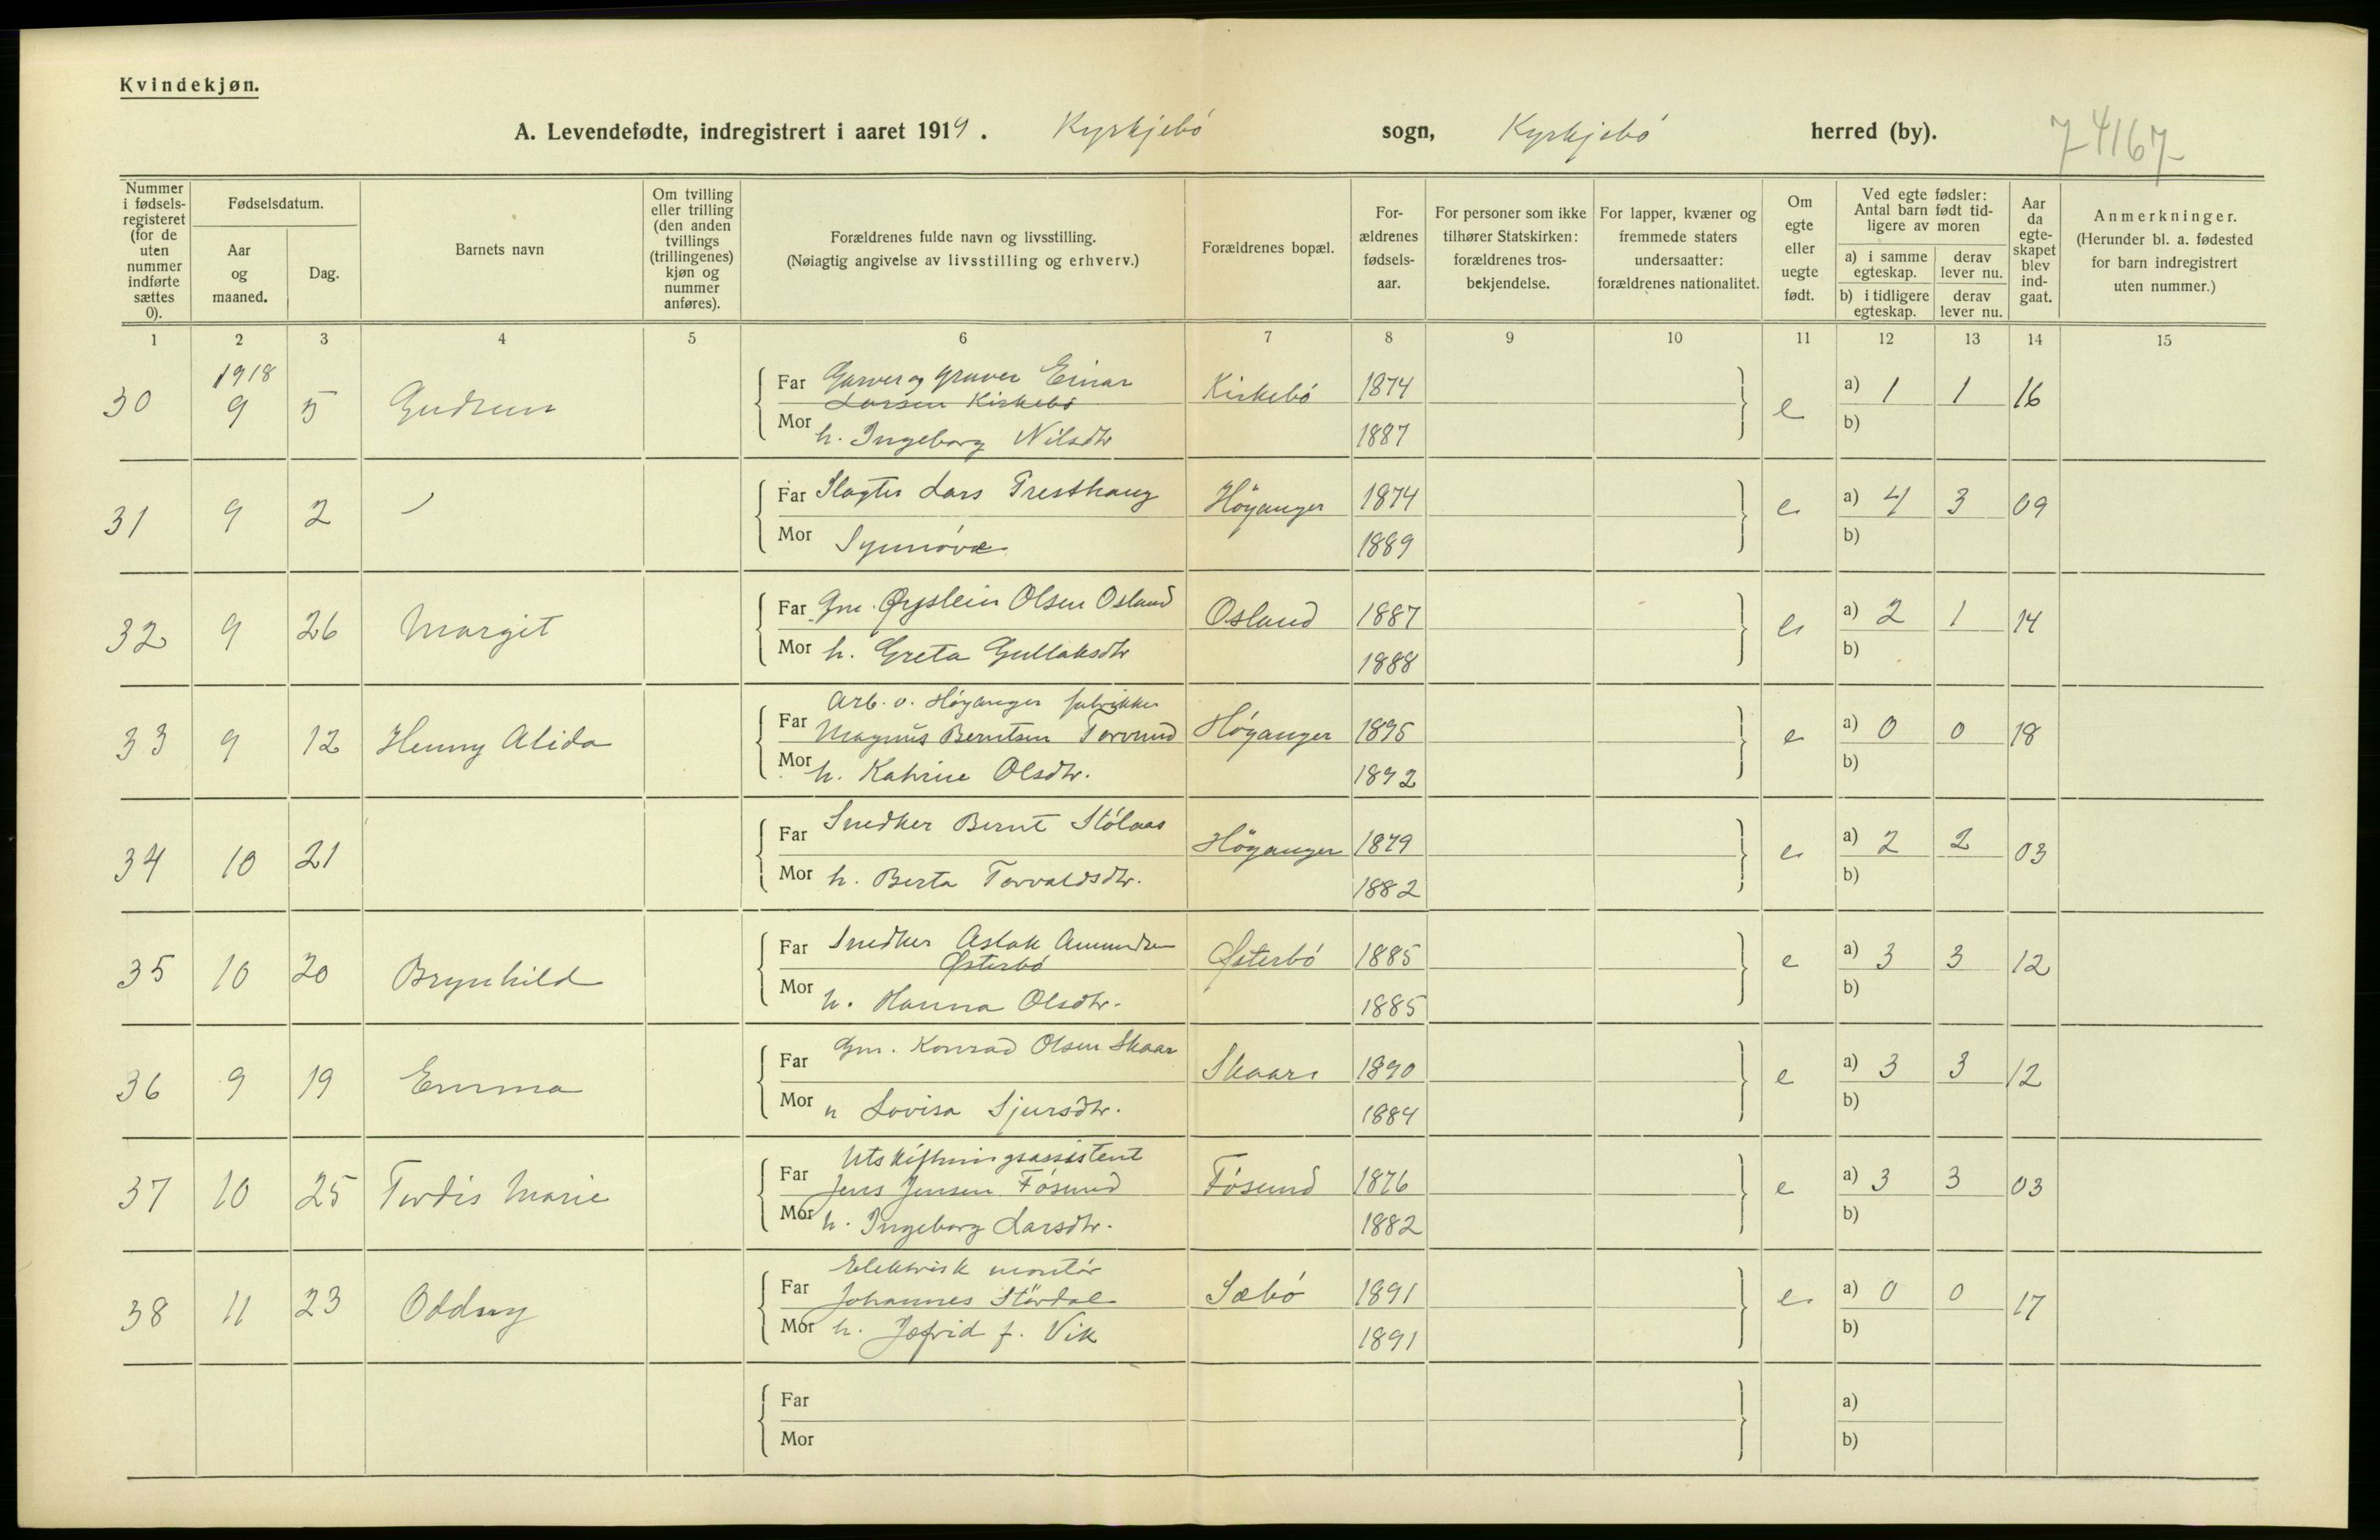 Kvindekjøn.
A. Levendefødte, indregistrert i aaret 1919. Kyrkjebó sogn, Kyrkjebó herred (by). 74167
Nummer i fødsels-registeret (for de uten nummer indførte sættes 0).
Fødselsdatum.
Aar og maaned.
Dag.
Barnets navn
Om tvilling eller trilling (den anden tvillings (trillingenes) kjøn og nummer anføres).
Forældrenes fulde navn og livsstilling.
(Nøiagtig angivelse av livsstilling og erhverv.)
Forældrenes bopæl.
For-ældrenes fødsels-aar.
For personer som ikke tilhører Statskirken: forældrenes tros-bekjendelse.
For lapper, kvæner og fremmede staters undersaatter: forældrenes nationalitet.
Om egte eller uegte født.
Ved egte fødsler: Antal barn født tid-ligere av moren
a) i samme egteskap. derav lever nu.
b) i tidligere egteskap. derav lever nu.
Aar da egte-skapet blev ind-gaat.
Anmerkninger.
(Herunder bl. a. fødested for barn indregistrert uten nummer.)
1 2 3 4 5 6 7 8 9 10 11 12 13 14 15
1918
30 9 5 Gudrun Far Garver og graver Einar Larsen Kirkebó Kirkebó 1874 e a) 1 1 16
Mor h. Ingeborg Nilsdtr 1887 b)
31 9 2 Far Slagter Lars Presthaug Höyanger 1874 e a) 4 3 09
Mor Synnóve 1889 b)
32 9 26 Margit Far Gm. Øystein Olsen Osland Osland 1887 e a) 2 1 14
Mor h. Greta Gullaksdtr 1888 b)
33 9 12 Henny Alida Far Arb. v. Høyanger fabrikker
Magnus Berntsen Torvund Høyanger 1895 e a) 0 0 18
Mor h. Katrine Olsdtr. 1892 b)
34 10 21 Far Snedker Bernt Stólaas Höyanger 1879 e a) 2 2 03
Mor h. Berta Torvaldsdtr. 1882 b)
35 10 20 Brynhild Far Snedker Aslak Amundsen
Østerbó Østerbó 1885 e a) 3 3 12
Mor h. Hanna Olsdtr. 1885 b)
36 9 19 Emma Far Gm. Konrad Olsen Skaar Skaar 1890 e a) 3 3 12
Mor h Lovisa Sjursdtr. 1884 b)
37 10 25 Tordis Marie Far Utskiftningsassistent
Jens Jensen Fósund Fósund 1876 e a) 3 3 03
Mor h. Ingeborg Larsdtr. 1882 b)
38 11 23 Oddny Far Elektrisk montór
Johannes Stördal Sæbó 1891 e a) 0 0 17
Mor h. Jofrid f. Vik 1891 b)
Far a)
Mor b)